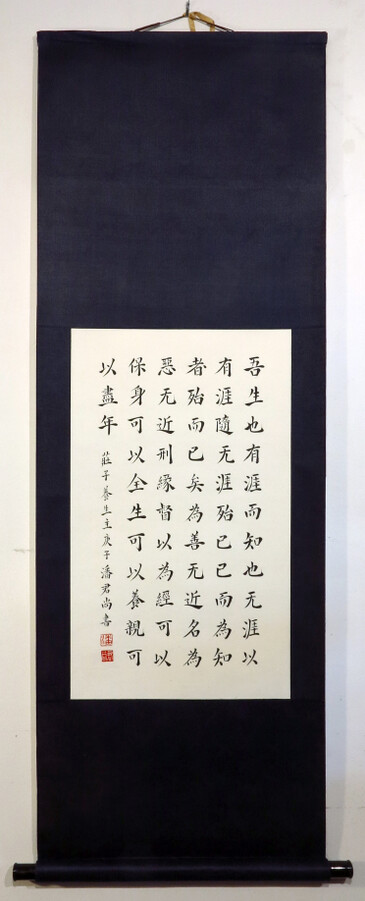 吾生也有涯而知也无涯以
有涯隨无涯殆已已而為知
者殆而已矣為善无近名為
惡无近刑緣督以為經可以
保身可以全生可以養親可
以盡年
莊子養生主庚子潘君尚書